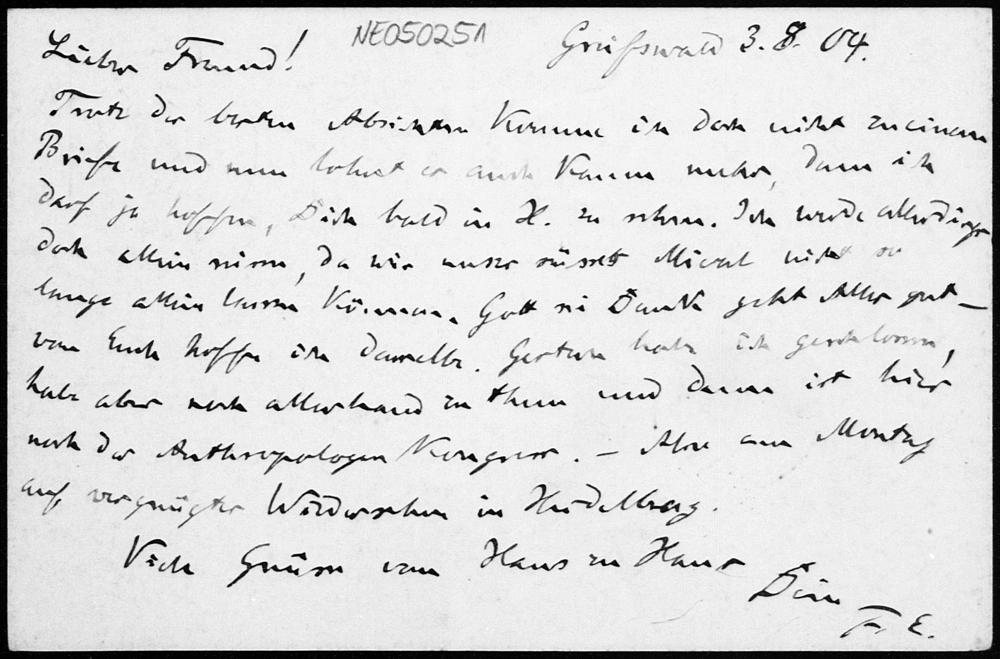 NE050251
Greifswald 3. 8. 04.
Lieber Freund!
Trotz der besten Absichten komme ich doch nicht zu einem
Briefe und nun lohnt es auch kaum mehr, denn ich
darf ja hoffen, Dich bald in H. zu sehen. Ich werde allerdings
doch allein reisen, da wir unser süsses nicht so
lange allein lassen können. Gott sei Dank geht Alles gut –
von Euch hoffe ich dasselbe. Gestern habe ich geschlossen,
habe aber noch allerhand zu thun und dann ist hier
noch der Anthropologen Kongress. – Also am Montag
auf vergnügtes Wiedersehen in Heidelberg.
Viele Grüsse von Haus zu Haus
Dein
F. E.